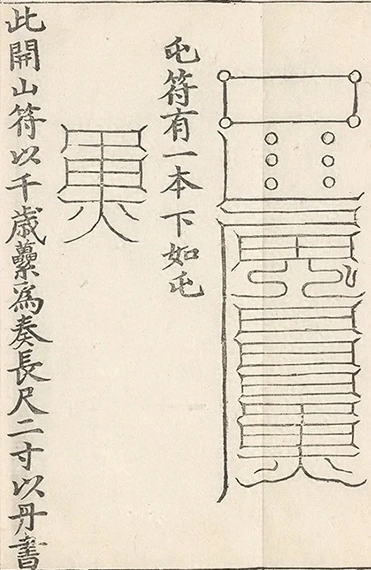 此符有一本下如此
此開山符以千歳虆為奏長尺二寸以丹書